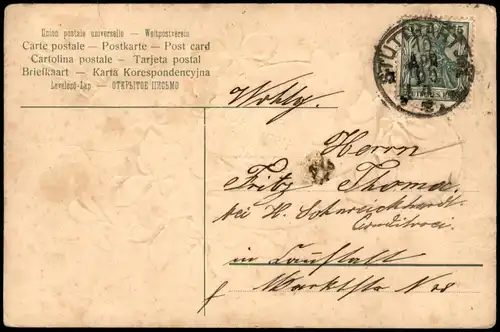 Union postale universelle — Weltpostverein
Carte postale — Postkarte — Post card
Cartolina postale — Tarjeta postal
Briefkaart — Karta Korespondencyjna
Levelező-Lap — ОТКРЫТОЕ ПИСЬМО
STUTTGART
APR
5
Wohlg.
Herrn
Fritz Thoma.
bei H. Schweickhardt
Conditorei
in Cannstatt
Marktstr No